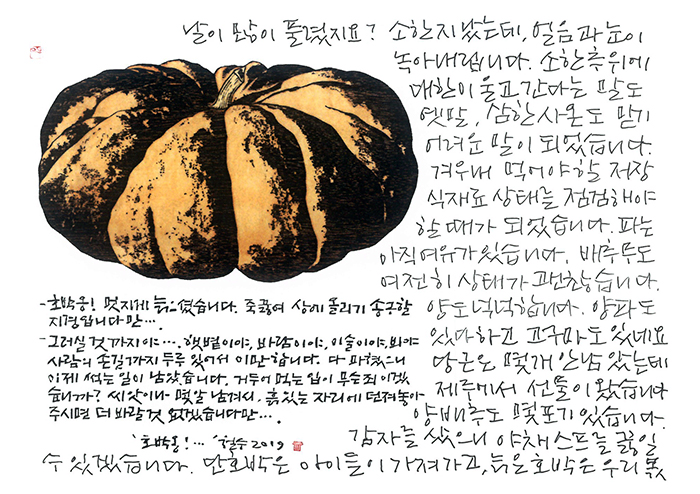 날이 많이 풀렸지요? 소한 지났는데, 얼음과 눈이
녹아내립니다. 소한 추위에
대한이 울고 간다는 말도
옛말, 삼한사온도 믿기
어려운 말이 되었습니다.
겨우내 먹어야할 저장
식재료 상태를 점검해야
할 때가 되었습니다. 파는
아직 여유가 있습니다. 배추 무도
여전히 상태가 괜찮습니다.
양도 넉넉합니다. 양파도
있다하고 고구마도 있네요
당근은 몇개 안남았는데
제주에서 선물이 왔습니다
양배추도 몇포기 있습니다.
감자를 야채스프를 끓일
수 있겠습니다. 단호박은 아이들이 가져가고, 늙은 호박은 우리 몫
-호박옹! 멋지게 늙으셨습니다. 죽 끓여 상에 올리기 송구할
지경입니다만….
-그러실 것까지야…. 햇볕이야, 바람이야, 이슬이야, 비야
사람의 손길까지 두루 있어서 이만합니다. 다 파했으니
이제 썩는 일이 남았습니다. 거두어 먹는 입이 무슨 죄이겠
습니까? 씨앗이나 몇알 남겨서, 흙 있는 자리에 던져놓아
주시면 더 바랄 것 없겠습니다만….
'호박옹!…' 철수 2019